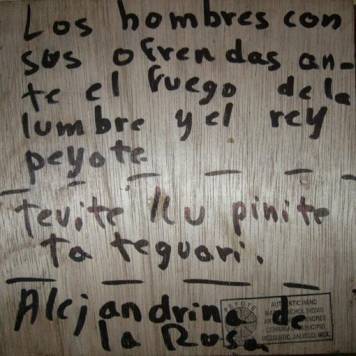 Los hombres con
sus ofrendas an-
te el fuego de la
lumbre y el rey
peyote
tevite ku pinite
ta teguari.
Alejandrina de
la Rosa